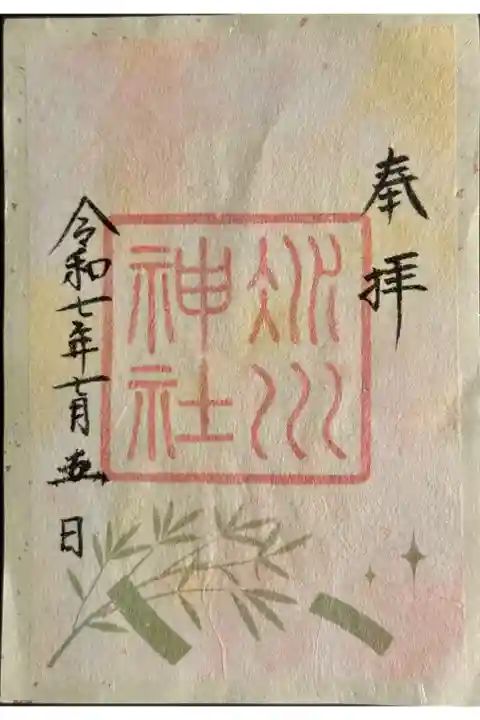 奉拝
氷川
神社
令和七年七月五日